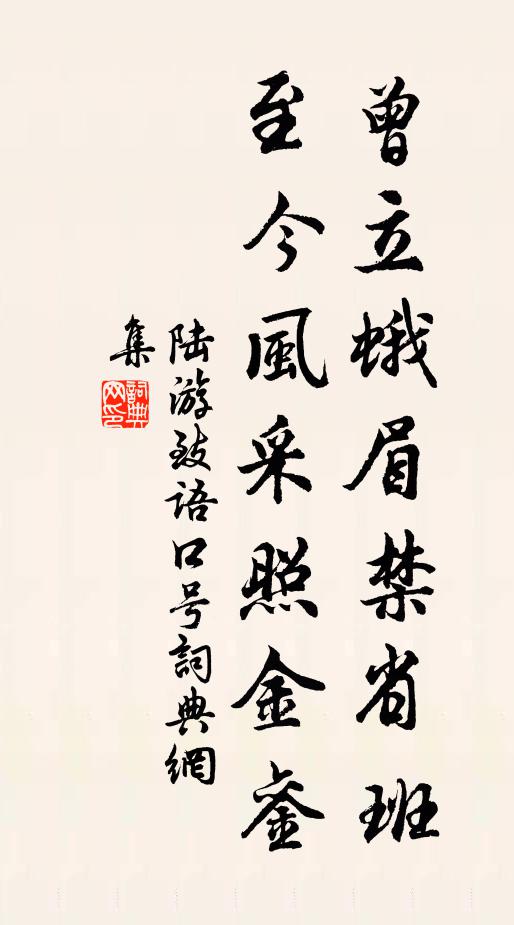 曾立蛾眉禁省班
至今風采照金銮
陆游致語口号詞典網
集
詞典网印